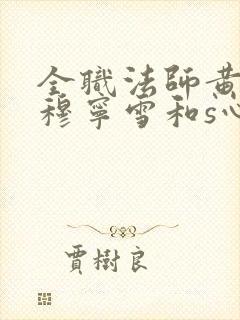 全職法師黃
穆寧雪和s心
賈樹良